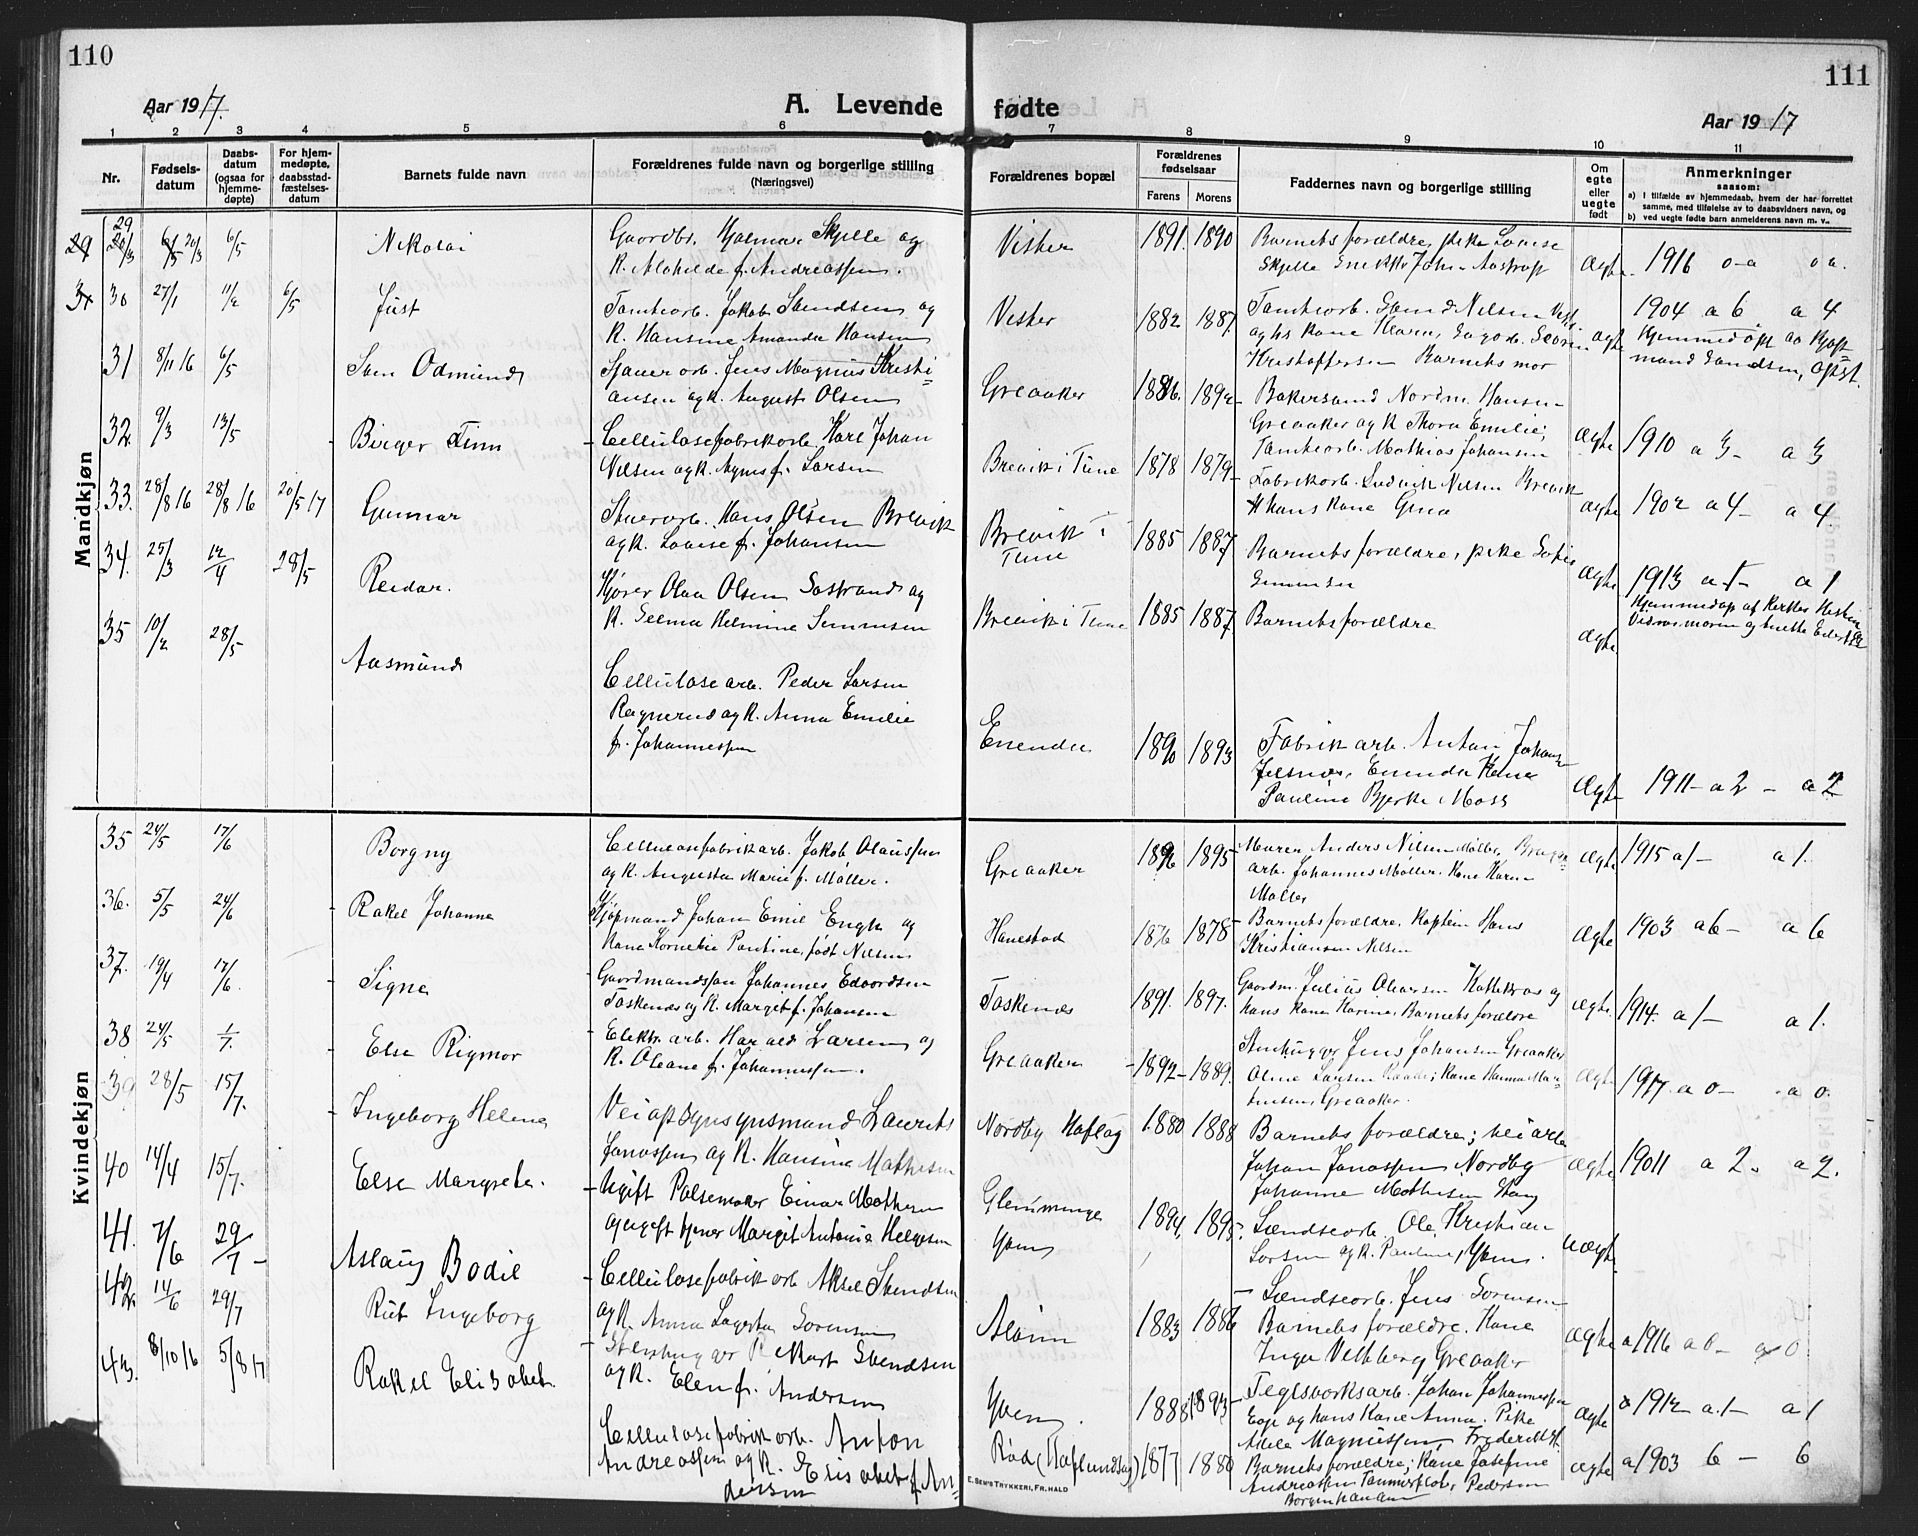 110
Aar 1917.
A. Levende
1 2 3 4 5 6
Nr.
Fødsels-
datum
Daabs-
datum
(ogsaa for
hjemme-
døpte)
For hjem-
medøpte,
daabsstad-
fæstelses-
datum
Barnets fulde navn
Forældrenes fulde navn og borgerlige stilling
(Næringsvei)
Mandkjøn
29 6/5 Nikolai
Gaardbr. Hjalmar Skjelle og
K. Alahilde f. Andreassen.
30 27/1 11/2 6/5 Just
Tomtearb. Jakob Svendsen og
K. Hansine Amanda Hansen
31 8/11 16 6/5 Sven Odmund
Sjauerarb. Jens Magnus Kristi-
ansen og K. August Olsen
32 9/3 13/5 Birger Finn
Cellulosefabrikarb. Karl Johan
Nilsen og K. Agnes f. Larsen
33. 28/8 16 28/8 16 20/5 17 Gunnar
Stuerarb. Hans Olsen Brevik
og K. Louise f. Johansen
34. 25/3 12/4 28/5 Reidar.
Kjører Olav Olsen Sostrand og
K. Selma Helmine Simensen
35 10/2 28/5 Aasmund
Cellulosearb. Peder Larsen
Ragnerud og K. Anna Emilie
f. Johannessen
Kvindekjøn
35 24/5 17/6 Borgny
fabrikarb. Jakob Olaussen
og K. Augusta Marie f. Møller.
36. 5/5 24/6 Rakel Johanne
Kjøpmand Johan Emil Engh og
Kane Kornelie Pauline, født Nilsen
37. 19/4 17/6 Signe
Gaardmandssøn Johannes Edvardsen
Taskenæs og K. Margit f. Johansen
38 24/5 1/7. Else Rigmor
Elektr. arb. Harald Larsen og
K. Oleane f. Johannessen.
39 28/5 15/7. Ingeborg Helene
Veiopsynsmand Laurits
Jonassen og K. Hansine Mathisen
40 14/4 15/7. Else Margrete.
Ugift Pølsemaker Einar Mathisen
og ugift tjener Margit Antonie Helgesen
41. 7/6 29/7 Aslaug Bodil
Cellulosefabrikarb Aksel Svendsen
og K. Anna Lagerta Sorensen
42. 14/6 29/7 Rut Ingeborg
Stenhugger Rikart Svendsen
og K. Elen f. Andersen
43. 8/10 16 5/8 17 Rakel Elisabet.
Cellulosefabrikarb. Anton
Andreassen og K. Elisabet f. An-
dersen
111
fødte
Aar 1917
7 8 9 10 11
Forældrenes bopæl
Forældrenes
fødselsaar
Farens Morens
Faddernes navn og borgerlige stilling
Om
egte
eller
uegte
født
Anmerkninger
saasom:
a) I tilfælde av hjemmedaab, hvem der har forrettet
samme, med tilføielse av to daabsvidners navn, og
b) ved uegte fødte barn anmelderens navn m. v.
Vister 1891. 1890
Barnets forældre, pike Louise
Skjelle Johan Aastrup
Ægte. 1916 o-a o a.
Vister 1882 1887
Tomtearb. Nilsen
Kristoffersen Barnets mor
ægte 1904 a 6 a 4
Hjemmedøpt av Kjøp-
mand
Greaaker 1886. 1892
Bakersvend Hansen
Greaaker og K Thora Emilie,
Tomtearb. Mathias Johansen
Ægte 1910 a 3 - a 3
Brevik i Tune 1878 1879
Fabrikarb. Ludvik Nilsen Brevik
Hans Kane Gina
ægte 1902 a 4 - a 4
Brevik i
Tune 1885 1887
Barnets forældre, pike
Simensen
Ægte 1913 a 1 - a 1
Brevik i Tune 1885 1887
Barnets forældre
ægte.
Enendee 1890 1893
Fabrikarb. Anton Johans
Kane
Pauline Bjerke Moss
Ægte 1911 - a 2 - a 2
Greaaker 1896 1895
Murer Anders Nilsen Møller,
arb. Johannes Møller. Kane Karen
Møller
ægte 1915 a 1 - a 1.
Hanestad 1876 1878
Barnets forældre, Kaptein Hans
Kristiansen Nilsen
ægte 1903 a 6 - a 6
Taskenæs 1891. 1897.
Gaardm. Julius Olausen og
Hans Kane Karine, Barnets forældre
ægte. 1914. a 1 - a 1.
Greaaker 1892 - 1889.
Stenhugger Jens Johansen Greaaker
Olme Larsen Kane Hanna Mar-
tinsen, Greaaker.
ægte 1917 a 0 - a 0.
Nordby Haflag 1880 1888
Barnets forældre; veiarb
Johan Jonassen Nordby
Johanne Mathisen Haug
ægte 1901 a 2. a 2.
Glemminge
Yven 1894, 1895.
Lændsearb. Ole Kristian
Larsen og K. Pauline, Yven.
uægte
Alvim 1883 1886
Lændsearb. Jens Sorensen
Barnets forældre. Kane
Inga Veltberg Greaaker
Ægte a 1916 a 0 - a 0
Yven. 1888 1893
Teglverksarb. Johan Johannessen
og hans Kane Anna. Pike
Adele Magnussen, Fredrikst.
ægte 1912 a 1 - a 1
Rød (Haflundsøy) 1877 1880
Barnets forældre; Kane Josefine
Andreassen Pedersen
Borgenhaugen
ægte a 1903 6 - 6
E. SEM'S TRYKKERI, FR.HALD